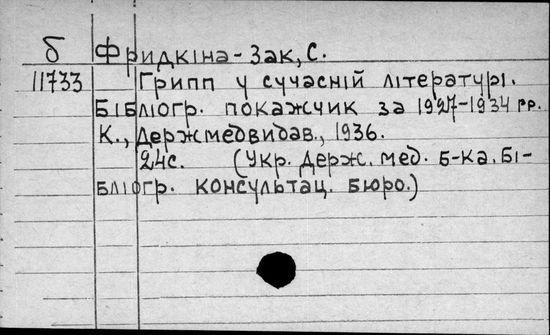 б Фридкіна-Зак, С.
11733 Грипп у сучасній літературі.
Бібліогр. покажчик за 1927-1934 рр.
К., Держмедвидав., 1936.
24с. (Укр. Держ. мед. б-ка. Бі-
бліогр. консультац. бюро.)